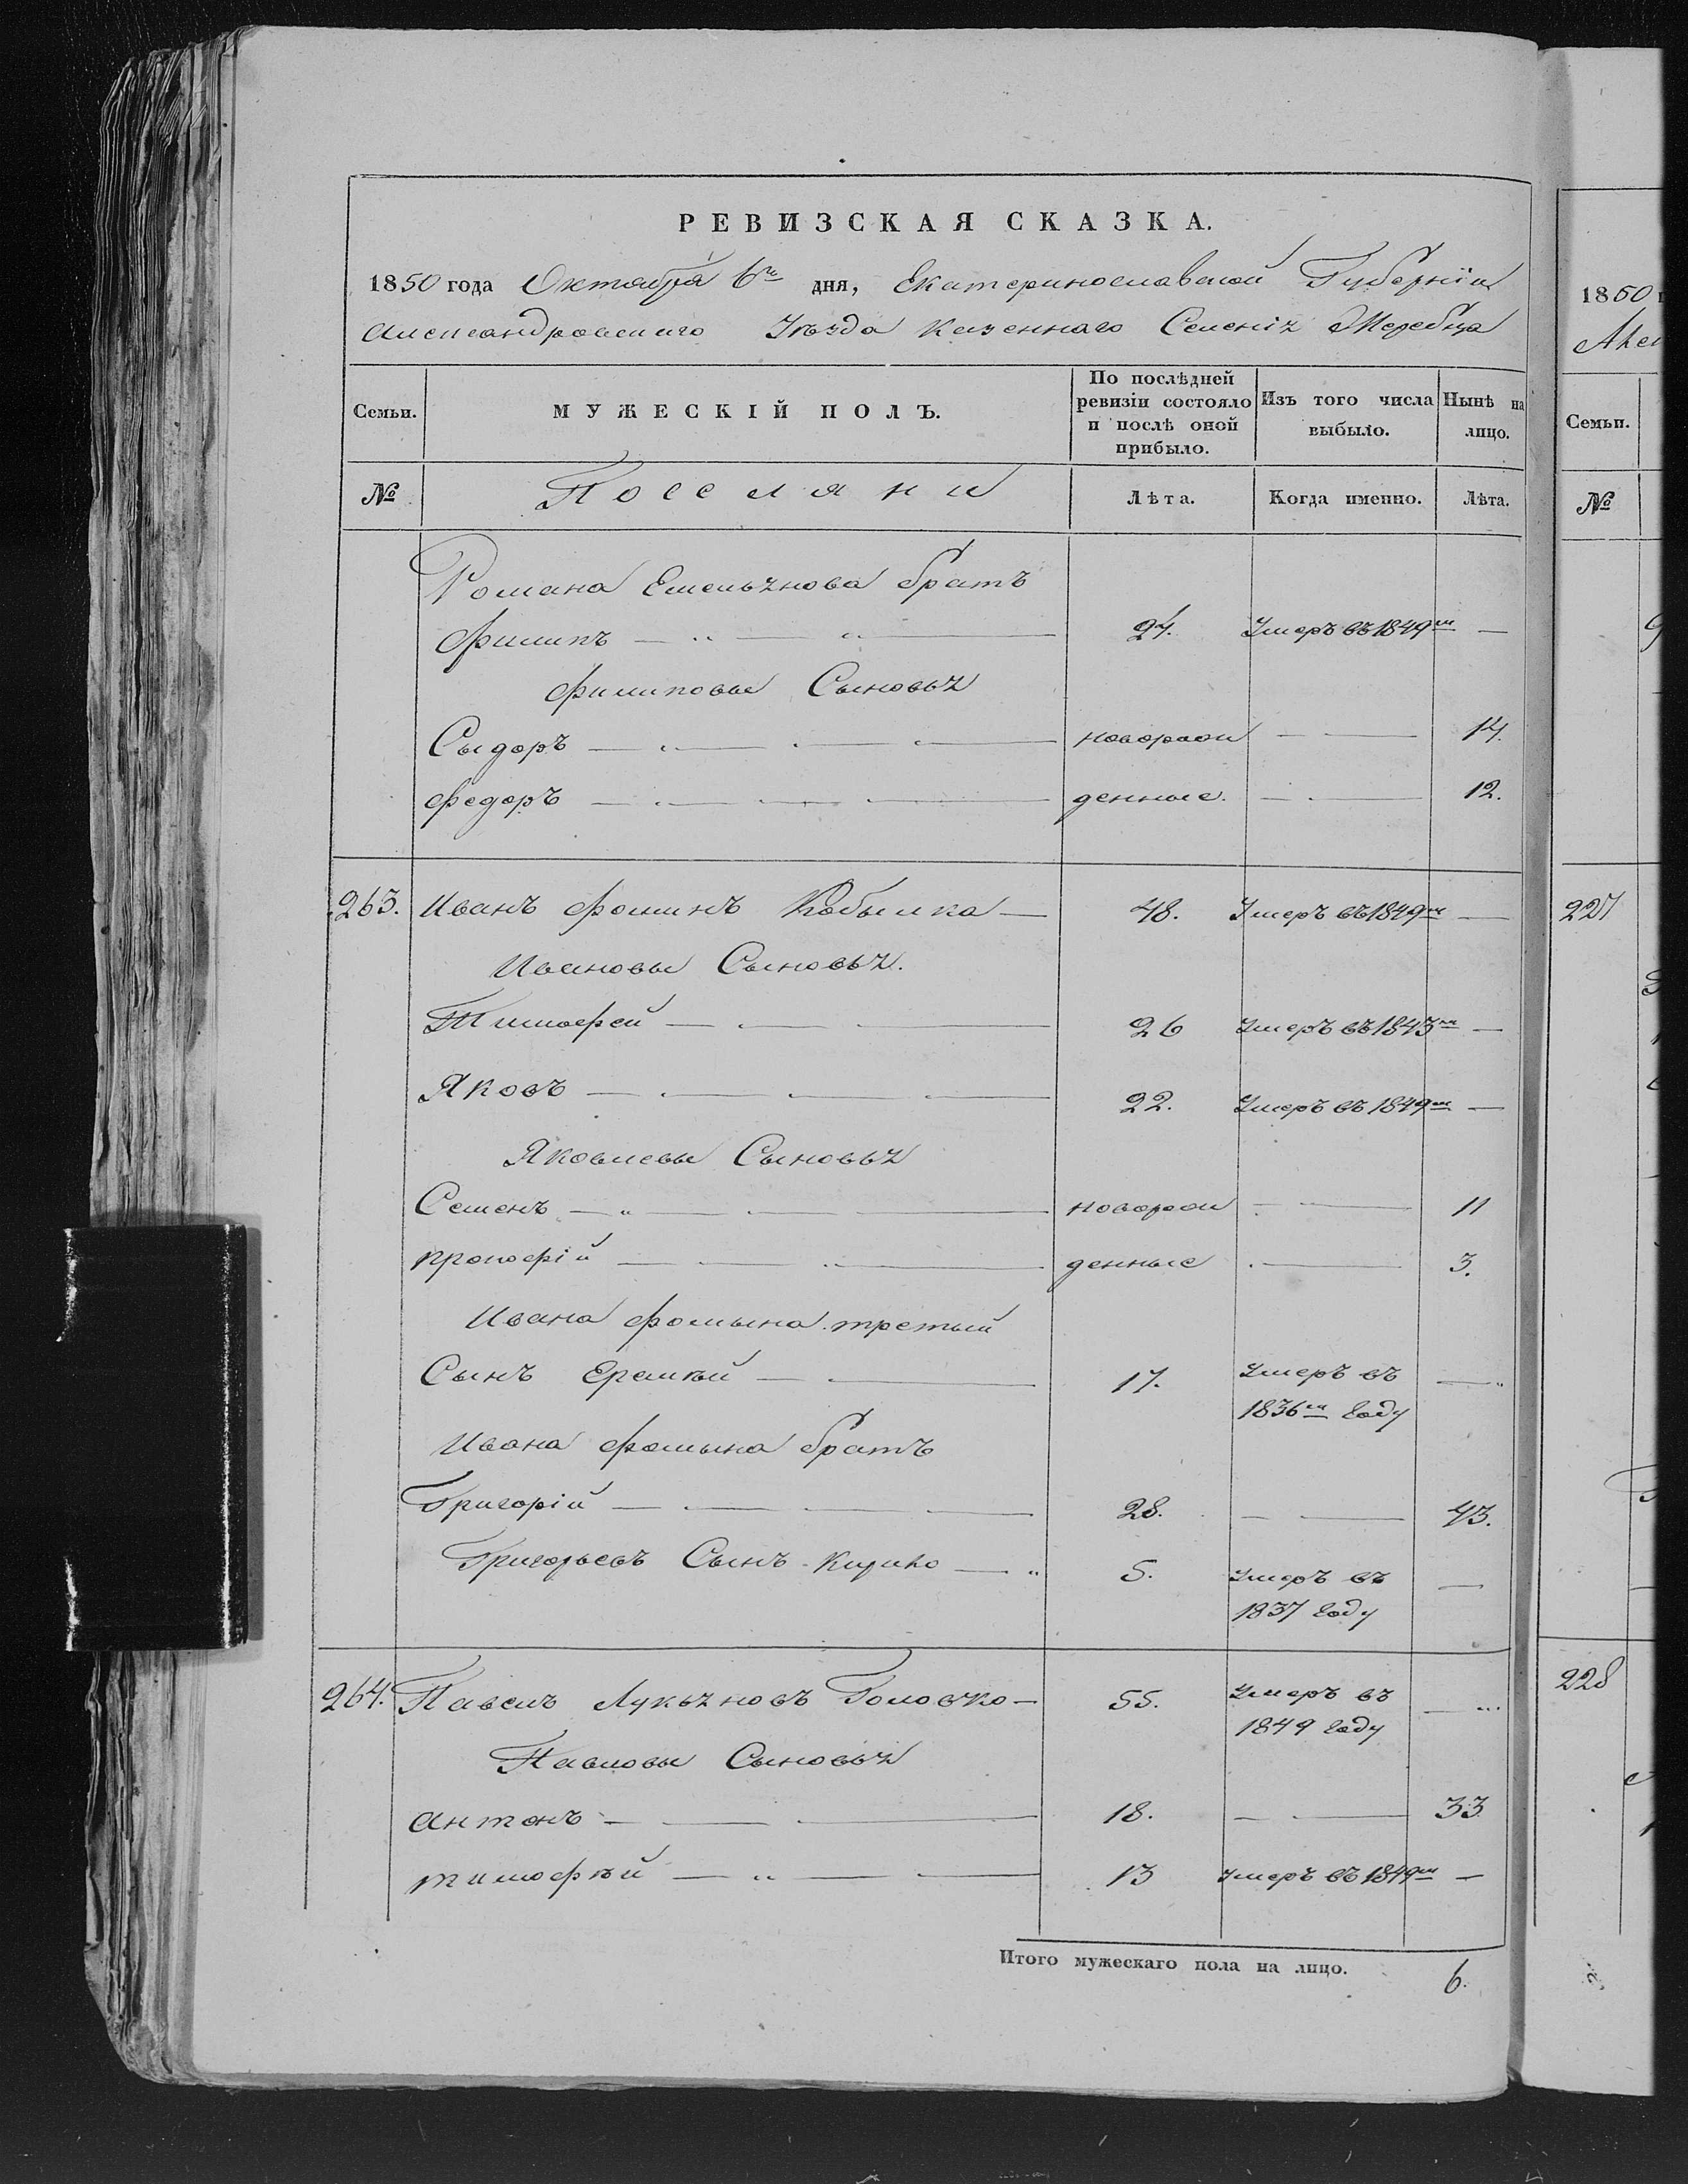 РЕВИЗСКАЯ СКАЗКА.
1850 года Октября 6го дня, Екатеринославской Губерніи
Александровскаго Уѣзда Казеннаго Селенія Жеребца
Семьи.
МУЖЕСКІЙ ПОЛЪ.
По послѣдней ревизіи состояло и послѣ оной прибыло.
Изъ того числа выбыло.
Нынѣ на лицо.
№
Поселяни
Лѣта.
Когда именно.
Лѣта.
Романа Емельянова братъ
Филипъ — 24. Умеръ въ 1849м —
Филиповы Сыновья
Сыдоръ — новорож — 14.
Федоръ — денные. — 12.
263. Иванъ Фоминъ Кобылка — 48. Умеръ въ 1849м —
Ивановы Сыновья.
Тимофей — 26 Умеръ въ 1843м —
Яковъ — 22. Умеръ въ 1849м —
Яковлевы Сыновья
Семенъ — новорож — 11
Прокофій — денные — 3.
Ивана Фомына третый
Сынъ Еремѣй — 17. Умеръ въ —
1836м Году
Ивана Фомына братъ
Григорій — 28. — 43.
Григорьевъ Сынъ Кирико — 5. Умеръ въ —
1837 Году
264. Павелъ Лукьяновъ Головко — 55. Умеръ въ —
1849 Году
Павловы Сыновья
Антонъ — 18. — 33
Тимофѣй — 13 Умеръ въ 1849м —
Итого мужескаго пола на лицо. 6.
1850
Семьи.
№
227
228